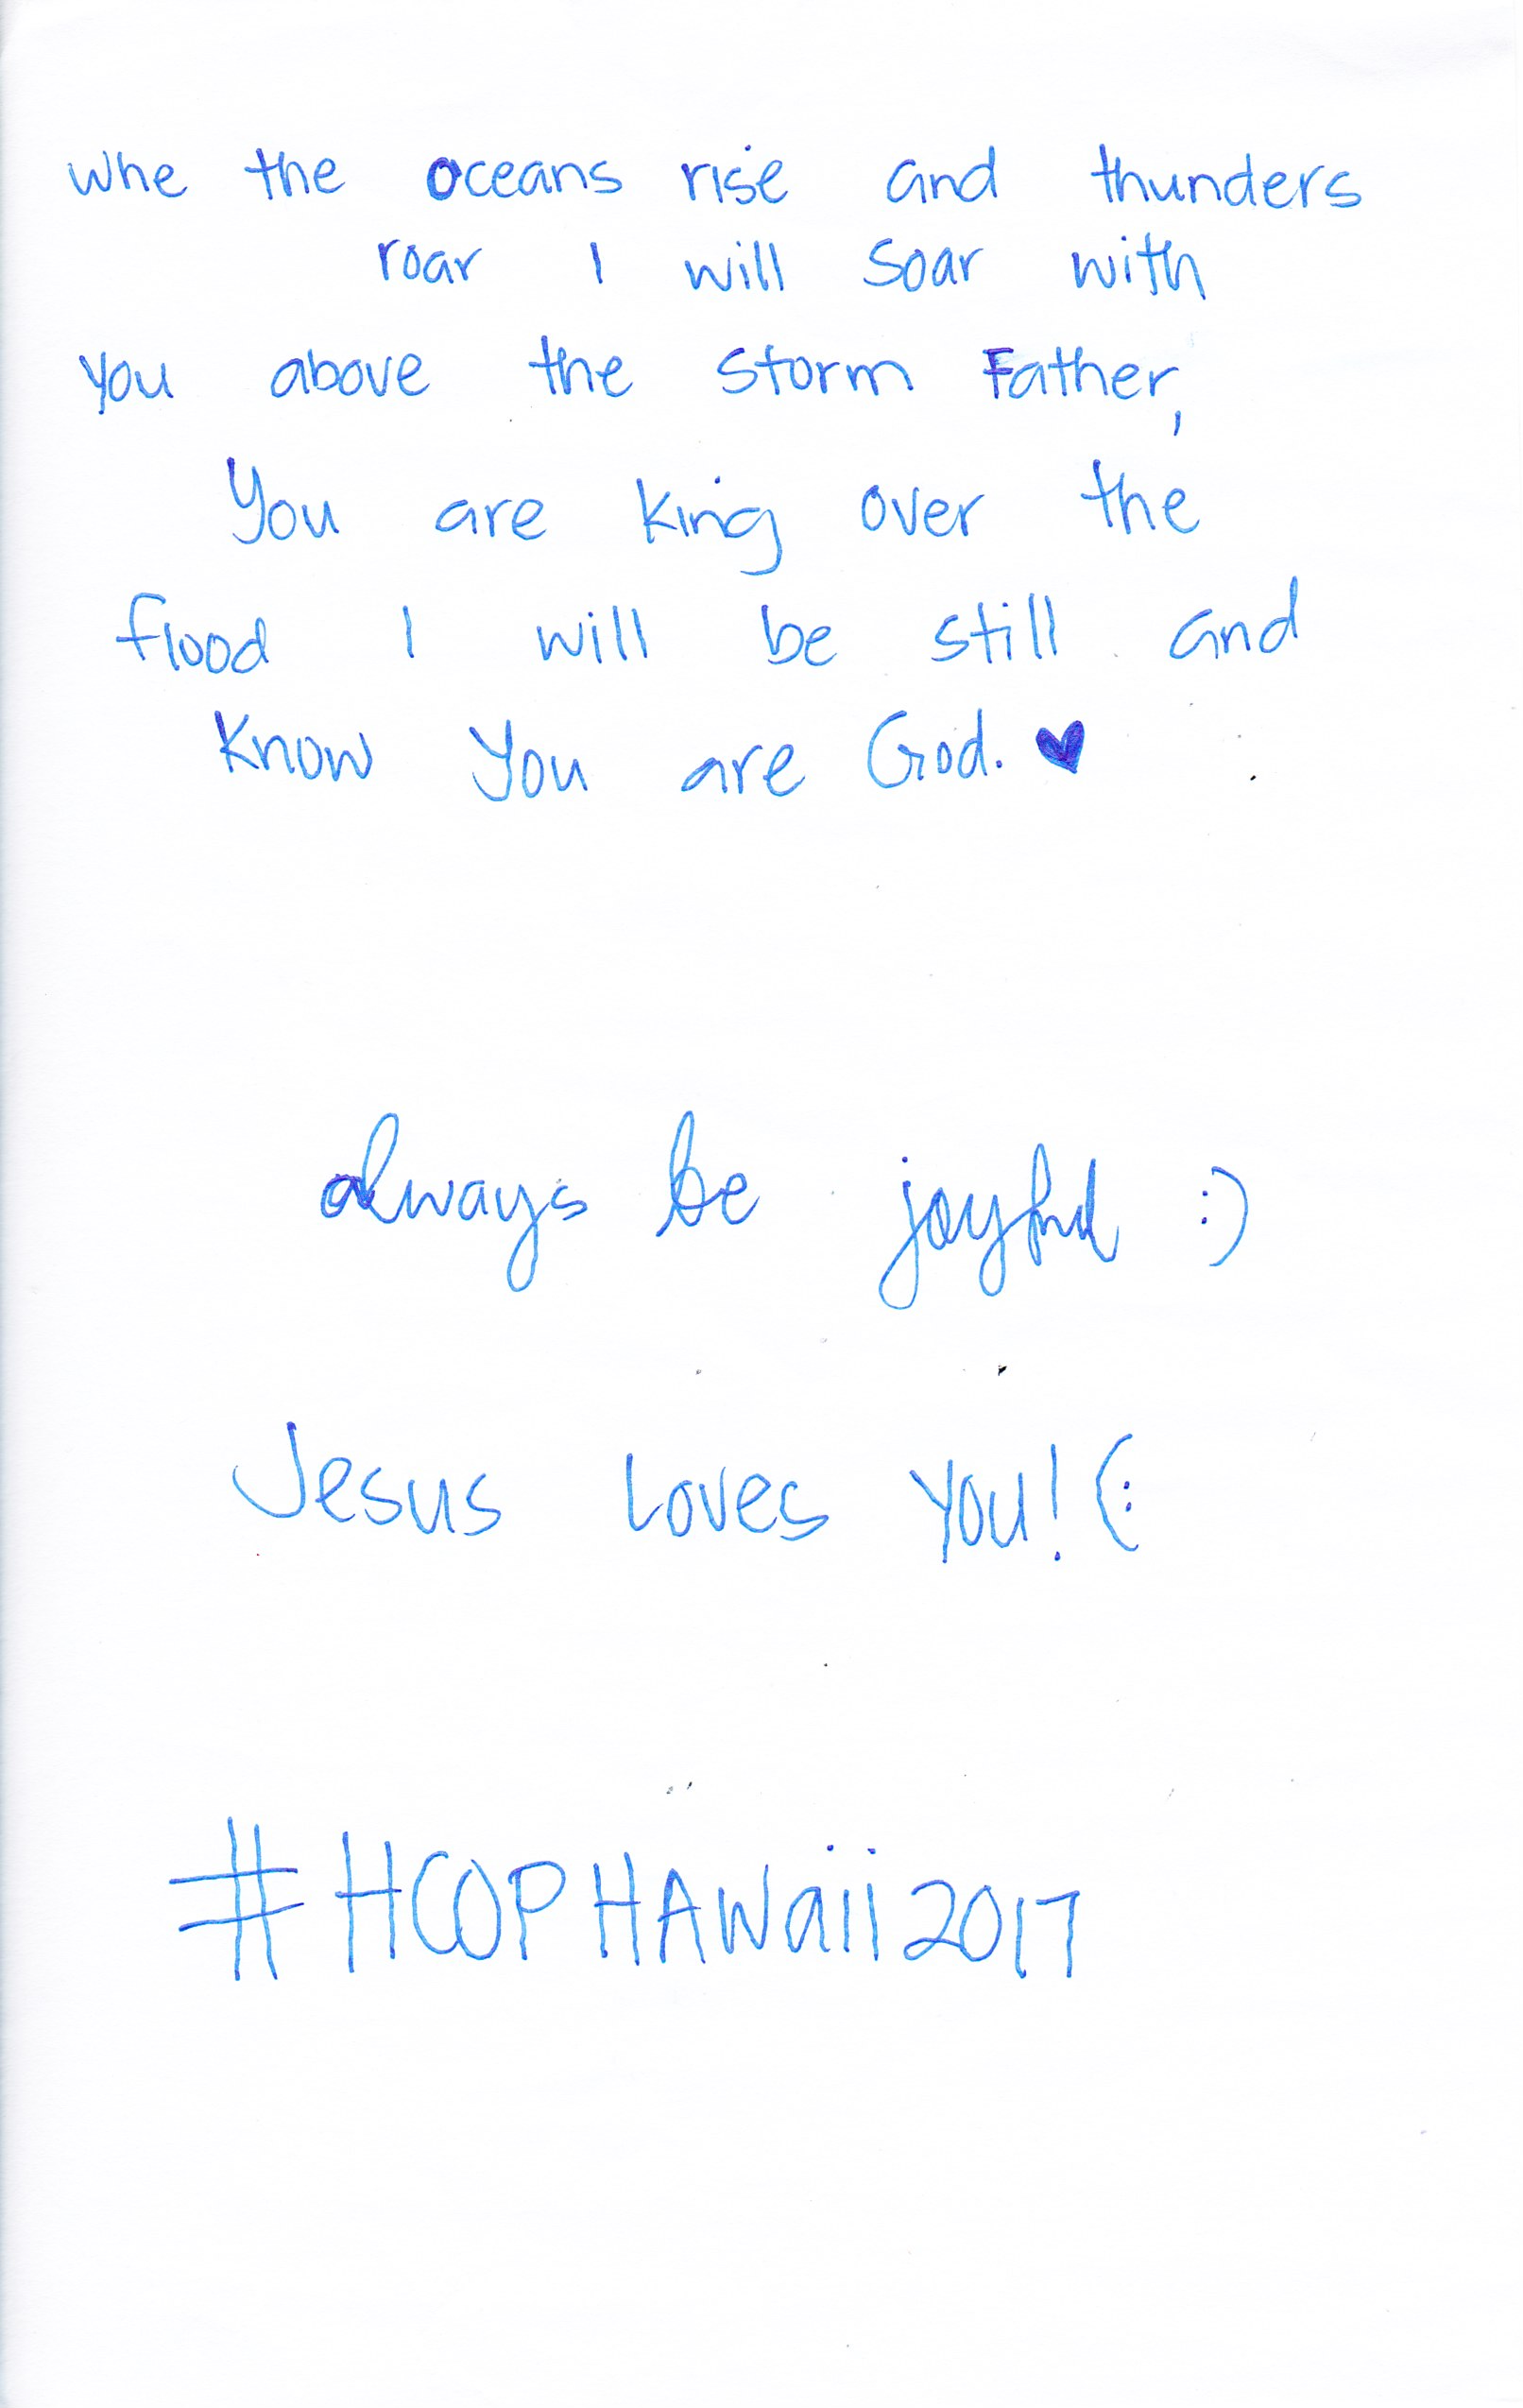 Whe the oceans rise and thunders
roar I will soar with
you above the storm Father,
You are king over the
flood I will be still and
know You are God. ♥
always be joyful :)
Jesus loves you! (:
#HCOPHAWaii2017